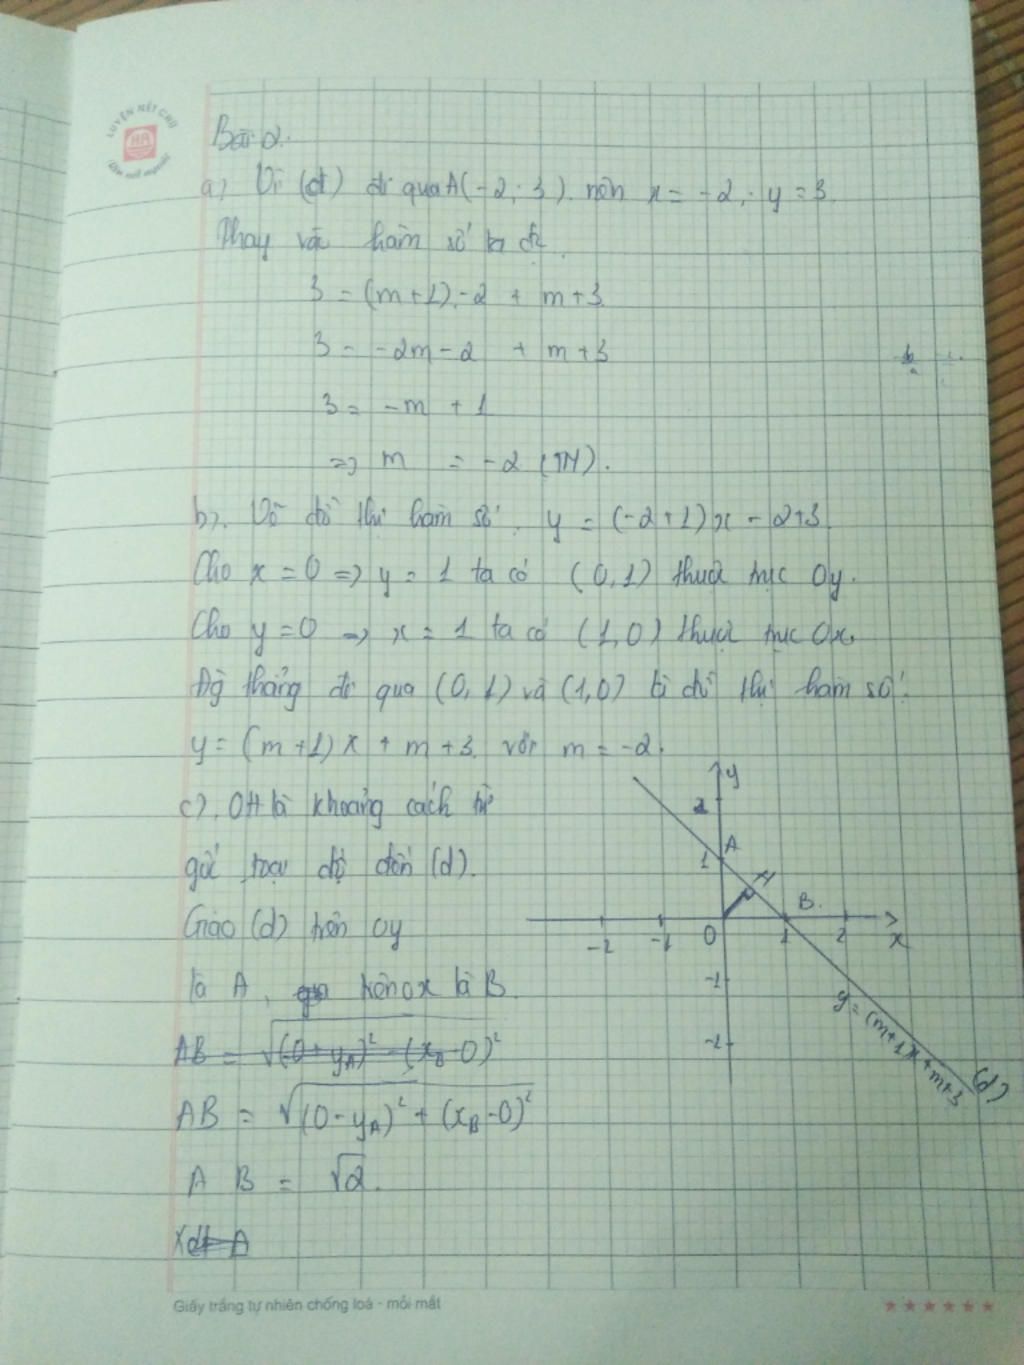 LUYỆN NÉT CHỮ
Bài 2.
a) Vì (d) đi qua A(-2; 3) nên x = -2; y = 3.
Thay vào hàm số ta đc
3 = (m+1).-2 + m+3
3 = -2m-2 + m+3
3 = -m + 1
=> m = -2 (TM).
b). Vẽ đồ thị hàm số. y = (-2+1)x - 2+3
Cho x = 0 => y = 1 ta có (0,1) thuộc trục Oy.
Cho y = 0 => x = 1 ta có (1,0) thuộc trục Ox.
Đg thẳng đi qua (0,1) và (1,0) là đồ thị hàm số:
y = (m+1)x + m+3. với m = -2.
c). OH là khoảng cách từ
gốc toạ độ đến (d).
Giao (d) trên Oy
là A, trên Ox là B.
AB = √(0+yA)² - (xB-0)²
AB = √(0-yA)² + (xB-0)²
AB = √2.
Xét A
y
2
1 A
H
B.
-2 -1 O 1 2 x
-1
-2
y = (m+1)x + m+3
(d)
Giấy trắng tự nhiên chống loá - mỏi mắt